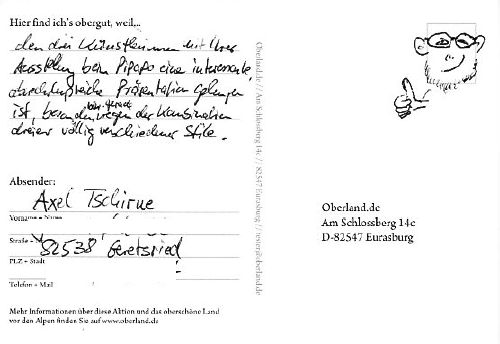 Hier find ich's obergut, weil,..
den drei Künstlerinnen mit Ihrer
Ausstellung beim Pipapo eine interessante,
Präsentation gelungen
ist, wegen der Kombination
dreier völlig verschiedener Stile.
Absender:
Axel Tschirne
Vorname + Name
Straße +
82538 Geretsried
PLZ + Stadt
Telefon + Mail
Mehr Informationen über diese Aktion und das oberschöne Land
vor den Alpen finden Sie auf www.oberland.de
Oberland.de // Am Schlossberg 14c // 82547 Eurasburg //
Oberland.de
Am Schlossberg 14c
D-82547 Eurasburg